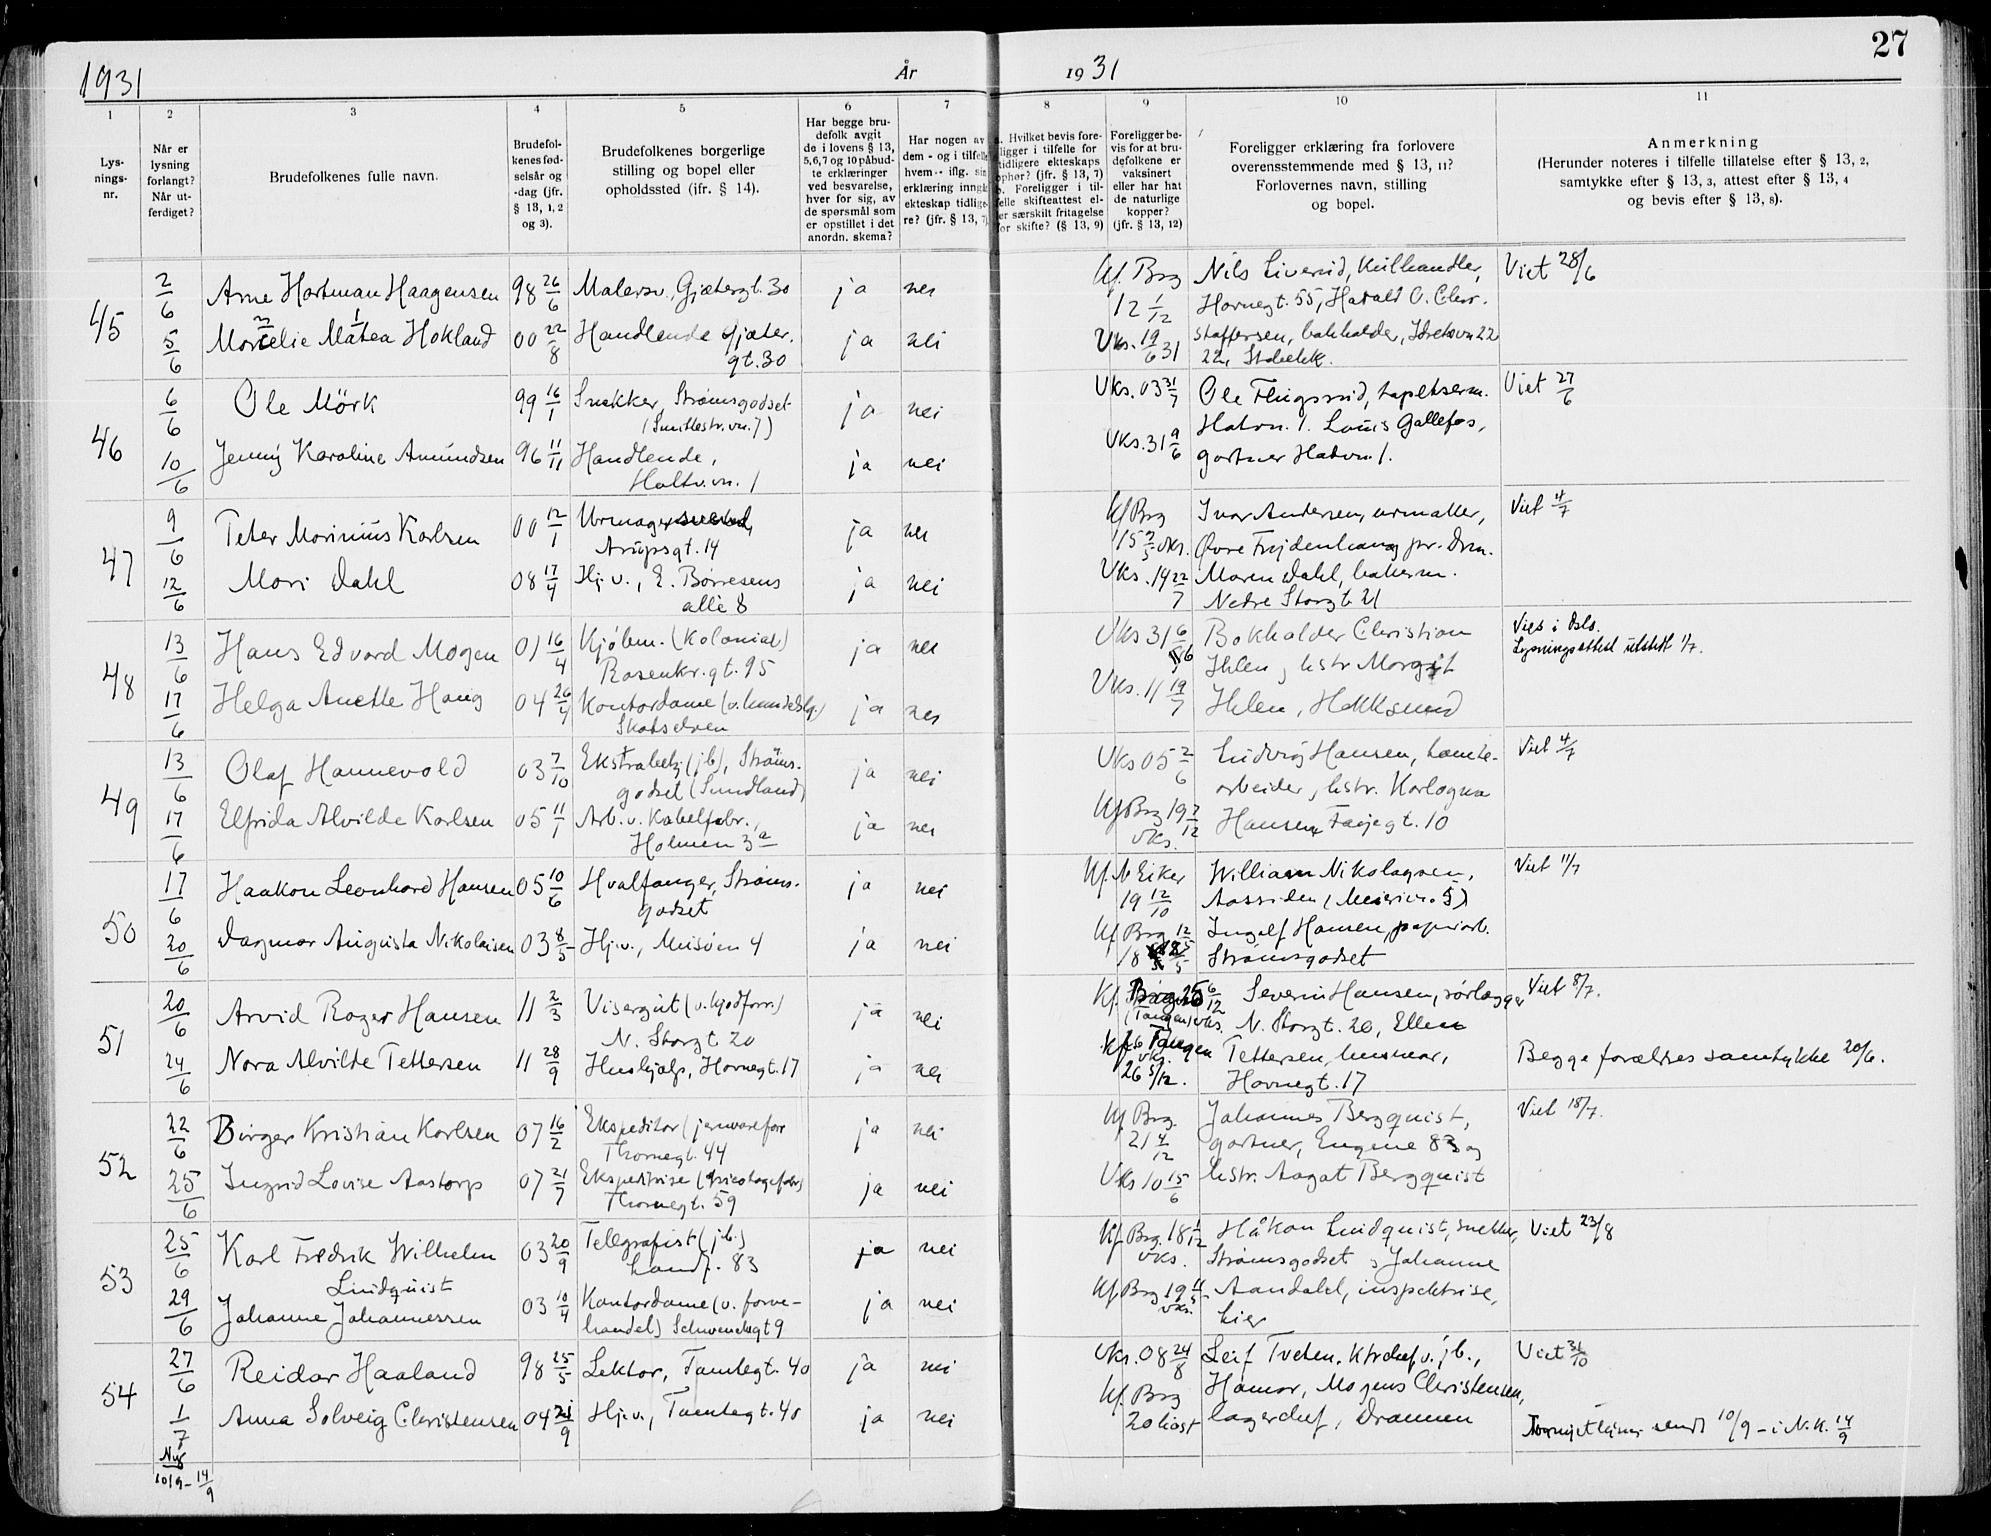 1931 År 1931 27
1 2 3 4 5 6 7 8 9 10 11
Lys-
nings-
nr.
Når er
lysning
forlangt?
Når ut-
ferdiget?
Brudefolkenes fulle navn.
Brudefol-
kenes fød-
selsår og
-dag (jfr.
§ 13, 1, 2
og 3).
Brudefolkenes borgerlige
stilling og bopel eller
opholdssted (ifr. § 14).
Har begge bru-
defolk avgit
de i lovens § 13,
5,6,7 og 10 påbud-
te erklæringer
ved besvarelse,
hver for sig, av
de spørsmål som
er opstillet i det
anordn. skema?
Har nogen av
dem - og i tilfelle
hvem - iflg. sin
erklæring inngåt
ekteskap tidlige-
re? (jfr. § 13, 7)
a. Hvilket bevis fore-
ligger i tilfelle for
tidligere ekteskaps
ophør? (jfr. § 13, 7)
b. Foreligger i til-
felle skifteattest el-
ler særskilt fritagelse
for skifte? (§ 13, 9)
Foreligger be-
vis for at bru-
defolkene er
vaksinert
eller har hat
de naturlige
kopper?
(jfr. § 13, 12)
Foreligger erklæring fra forlovere
overensstemmende med § 13, 11?
Forlovernes navn, stilling
og bopel.
Anmerkning
(Herunder noteres i tilfelle tillatelse efter § 13, 2,
samtykke efter § 13, 3, attest efter § 13, 4
og bevis efter § 13, 8).
45 2/6 Arne Hartman Haagensen 98 26/6 Malersv., Gjætergt. 30 ja nei Kf. Brg 12 1/12 Nils Liverud, Kulhandler, Viet 28/6
Havnegt. 55, Harald O. Chr.
5/6 Morcelie Matea Hokland 00 22/8 Handlende Gjæter. ja nei Vks. 19/6 31 Staffersen, bokholder,
gt. 30 22, Stabekk.
46 6/6 Ole Mörk 99 16/1 Snekker, Strømsgodset ja nei Vks. 03 31/7 Ole Flugsrud, tapetserm. Viet 27/6
Hatvn. 1. Louis Gallefos,
10/6 Jenny Karoline Amundsen 96 11/11 Handlende, ja nei Vks. 31 9/6 gartner Hatvn 1.
47 9/6 Peter Marinius Karlsen 00 12/1 Urmager ja nei Kf Brg 15 Ivar Andersen, urmaker, Viet 4/7
Arupsgt. 14 vks.
12/6 Mari Dahl 08 17/4 Hj. v., E. Børresens ja nei Vks. 14 22/7 Maren Dahl, bakerm.
allè 8 Nedre Storgt. 21
48 13/6 Hans Edvard Mogen 01 16/4 Kjøbm. (kolonial) ja nei Vks 31 6/6 Bokholder Christian Vies i Oslo.
Rosenkr. gt. 95 Ihlen, hstr Margit Lysningsattest utstedt 1/7.
17/6 Helga Anette Haug 04 26/4 Kontordame (v. handelslg.) ja nei Vks. 11 19/7 Ihlen, Hokksund
Skotselven
49 13/6 Olaf Hannevold 03 7/10 Ekstrabetj (jb), Strøms. ja nei Vks 05 2/6 Ludvig Hansen, tomte- Viet 4/7
godset (Sundland) arbeider, hstr.
17/6 Elfrida Alvilde Karlsen 05 11/1 Arb. v. Kabelfabr., ja nei Kf Brg 19 7/12 vks. Hansen, Færjegt. 10
Holmen 3a
50 17/6 Haakon Leonhard Hansen 05 10/6 Hvalfanger, Strøms- ja nei Kf. N Eiker 19 12/10 William Nikolaysen, Viet 11/7
godset Aassiden
20/6 Dagmar Augusta Nikolaisen 03 8/5 Hj. v., Meisöen 4 ja nei Kf Brg 12/5 18 Ingolf Hansen, papirarb.
Strømsgodset
51 20/6 Arvid Roger Hansen 11 2/3 Visergut ja nei Kf. Brag 25 6/12 Severin Hansen, rørlægger Viet 8/7.
N. Storgt 20 (Tangen) vks. N. Storgt. 20, Ellen
24/6 Nora Alvilde Pettersen 11 28/9 Hushjælp, Havnegt. 17 ja nei Kf. Tangen vks. 26 5/12. Pettersen, husmor, Begge forældres samtykke 20/6.
Havnegt. 17
52 22/6 Birger Kristian Karlsen 07 16/2 Ekspeditør (jernvareforr ja nei Kf Brg. 21 4/12 Johannes Bergquist, Viet 18/7.
Thornegt. 44 gartner, Eugenie 83 og
25/6 Ingrid Lovise Aastorp 07 21/7 Ekspeditrise (tricotagefabr) ja nei Vks 10 15/6 hstr. Aagot Bergquist
Thornegt. 59
53 25/6 Karl Fredrik Wilhelm 03 20/9 Telegrafist (jb.) ja nei Kf Brg. 18 1/12 vks. Håkon Lindquist, snekker, Viet 23/8
Lindquist Landf. 83 Strømsgodset, Johanne
29/6 Johanne Johannessen 03 10/4 Kontordame (v. forve- ja nei Kf Brg 19 11/5 vks. Aandahl, inspektrise,
handel) Schwenckegt 9 Lier
54 27/6 Reidar Haaland 98 25/5 Lektor, Tomtegt. 40 ja nei Vks. 08 24/8 Leif Tveten, Ktrchef v. jb., Viet 31/10
Hamar, Mogens Christensen,
1/7 Anna Solveig Christensen 04 21/9 Hj. v., Tomtegt. 40 ja nei Kf. Brg 20 høst lagerchef, Drammen
Ny 10/9 - 14/9 sendt 10/9 - i N. K. 14/9